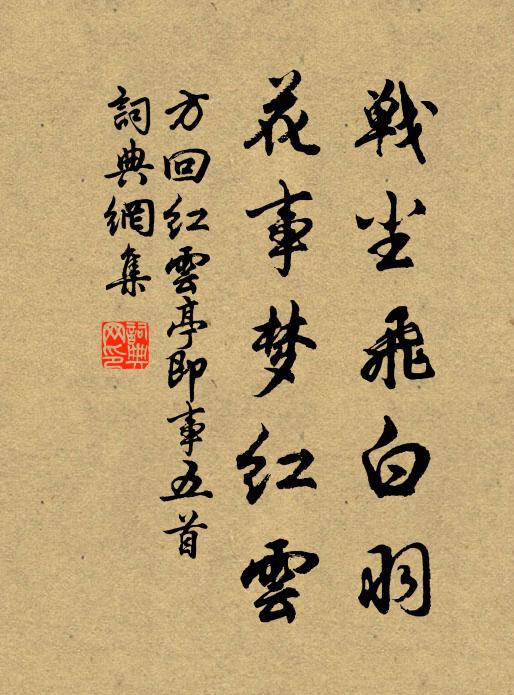 戦尘飛白羽
花事梦红雲
方回红雲亭即事五首
詞典網集
詞典网印